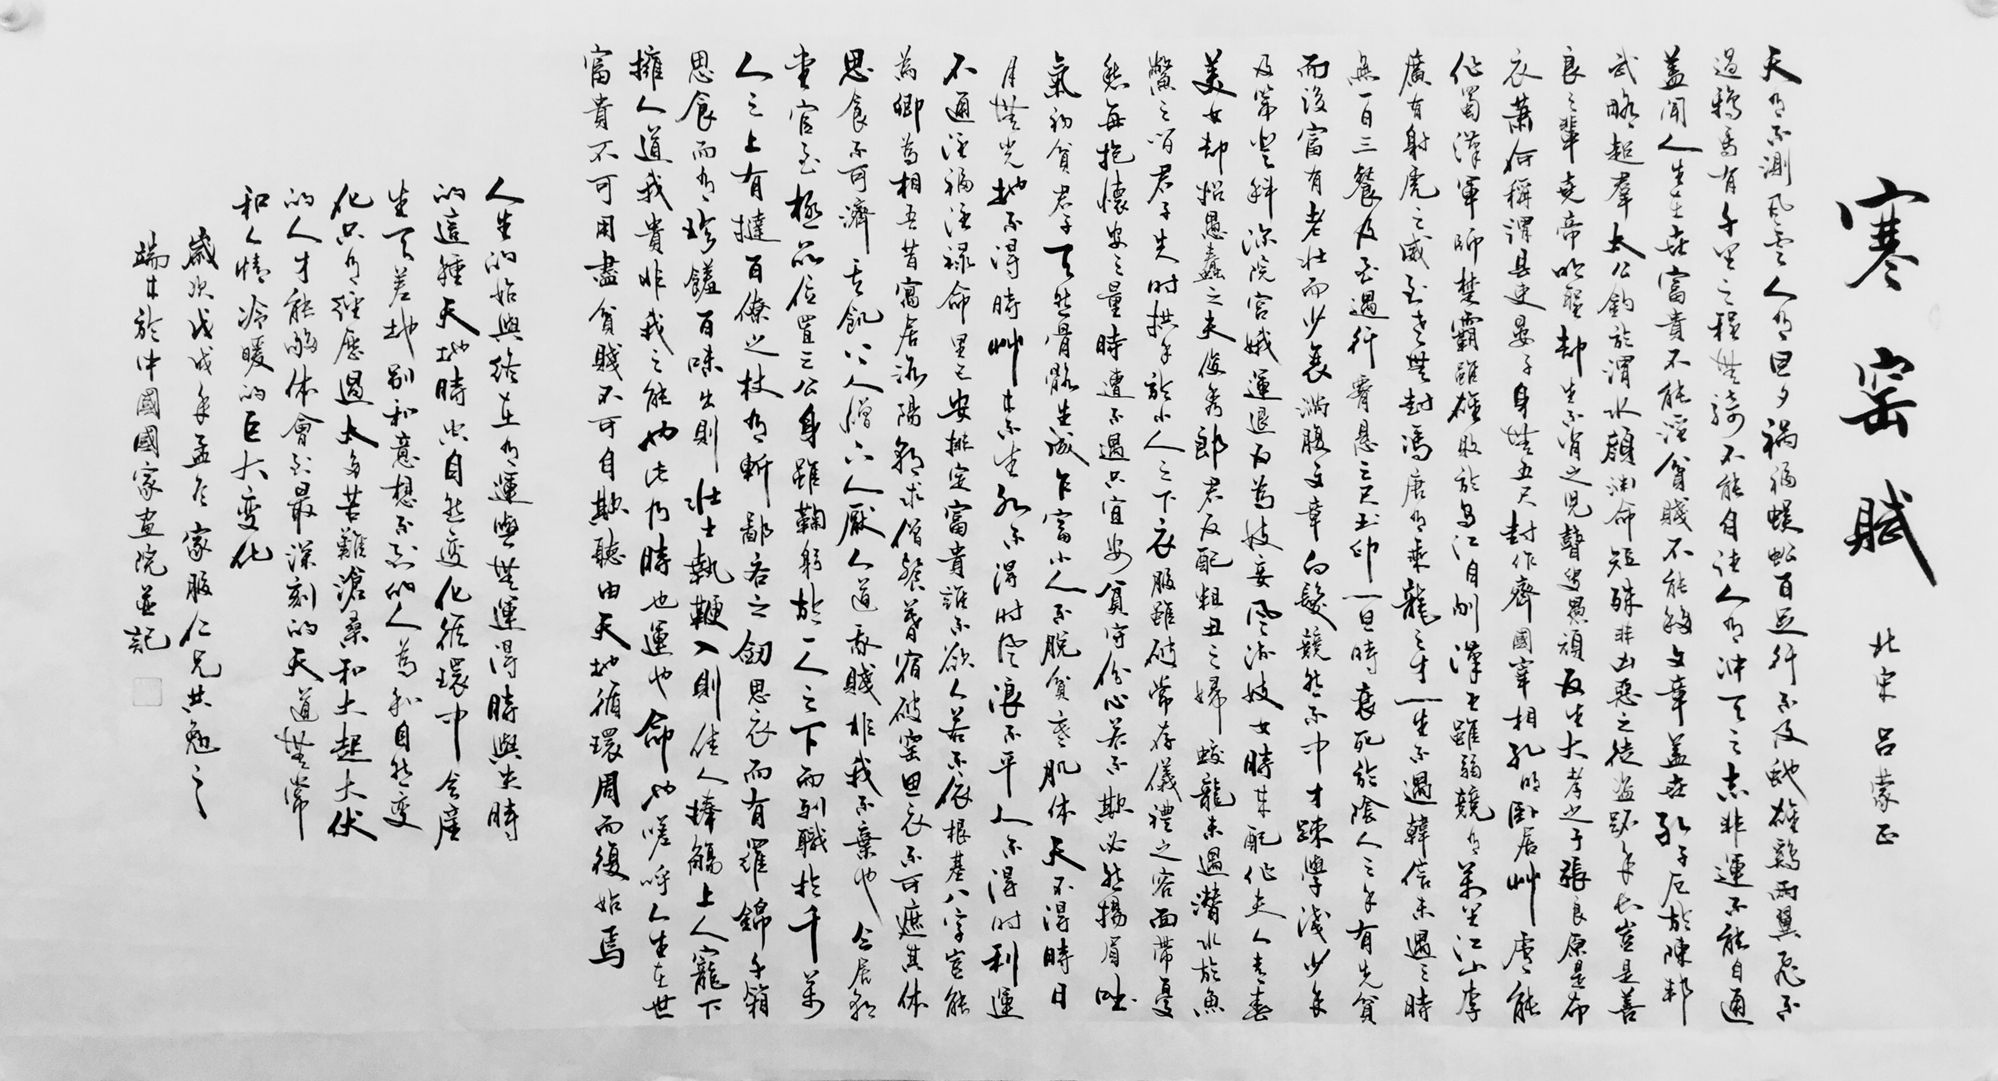 寒窑賦
北宋 呂蒙正
天有不測風雲人有旦夕禍福蜈蚣百足行不及蛇雄鷄兩翼飛不
過鴉馬有千里之程無騎不能自往人有沖天之志非運不能自通
蓋聞人生在世富貴不能淫貧賤不能移文章蓋世孔子厄於陳邦
武略超羣太公釣於渭水顏淵命短殊非凶惡之徒盜跖年長豈是善
良之輩堯帝明聖却生不肖之兒瞽叟愚頑反生大孝之子張良原是布
衣蕭何稱謂县吏晏子身無五尺封作齊國宰相孔明卧居艸盧能
作蜀漢軍師楚霸雖雄敗於烏江自刎漢王雖弱競有萬里江山李
廣有射虎之威到老無封馮唐有乘龍之才一生不遇韓信未遇之時
無一日三餐及至遇行腰懸三尺玉印一旦時衰死於陰人之手有先貧
而後富有老壯而少衰滿腹文章白髮競然不中才疎學淺少年
及第登科深院宮娥運退反為妓妾風流妓女時來配作夫人青春
美女却招愚蠢之夫俊秀郎君反配粗丑之婦蛟龍未遇潛水於魚
鱉之間君子失时拱手於小人之下衣服雖破常存儀禮之容面帶憂
愁每抱懷安之量時遭不遇只宜安貧守份心若不欺必然揚眉吐
氣初貧君子天然骨骼生成乍富小人不脫貧寒肌体天不得時日
月無光地不得時艸木不生水不得时風浪不平人不得时利運
不通注福注禄命里已安排定富貴誰不欲人若不依根基八字豈能
為卿為相吾昔寓居洛陽朝求僧餐暮宿破窑思衣不可遮其体
思食不可濟其飢上人憎下人厭人道我賤非我不棄也今居朝
堂官至極品位置三公身雖鞠躬於一人之下而列職於千萬
人之上有撻百僚之杖有斬鄙吝之劒思衣而有羅錦千箱
思食而有珍饈百味出則壯士執鞭入則佳人捧觴上人寵下
擁人道我貴非我之能也此乃時也運也命也嗟呼人生在世
富貴不可用盡貧賤不可自欺聽由天地循環周而復始焉
人生的始與終在有運與無運得時與失時
的這種天地時空自然变化循環中会產
生天差地別和意想不到的人為和自然变
化只有經歷過太多苦難滄桑和大起大伏
的人才能夠体會到最深刻的天道無常
和人情冷暖的巨大变化
歲次戊戌年孟冬家服仁兄共勉之
端木於中國國家画院並記